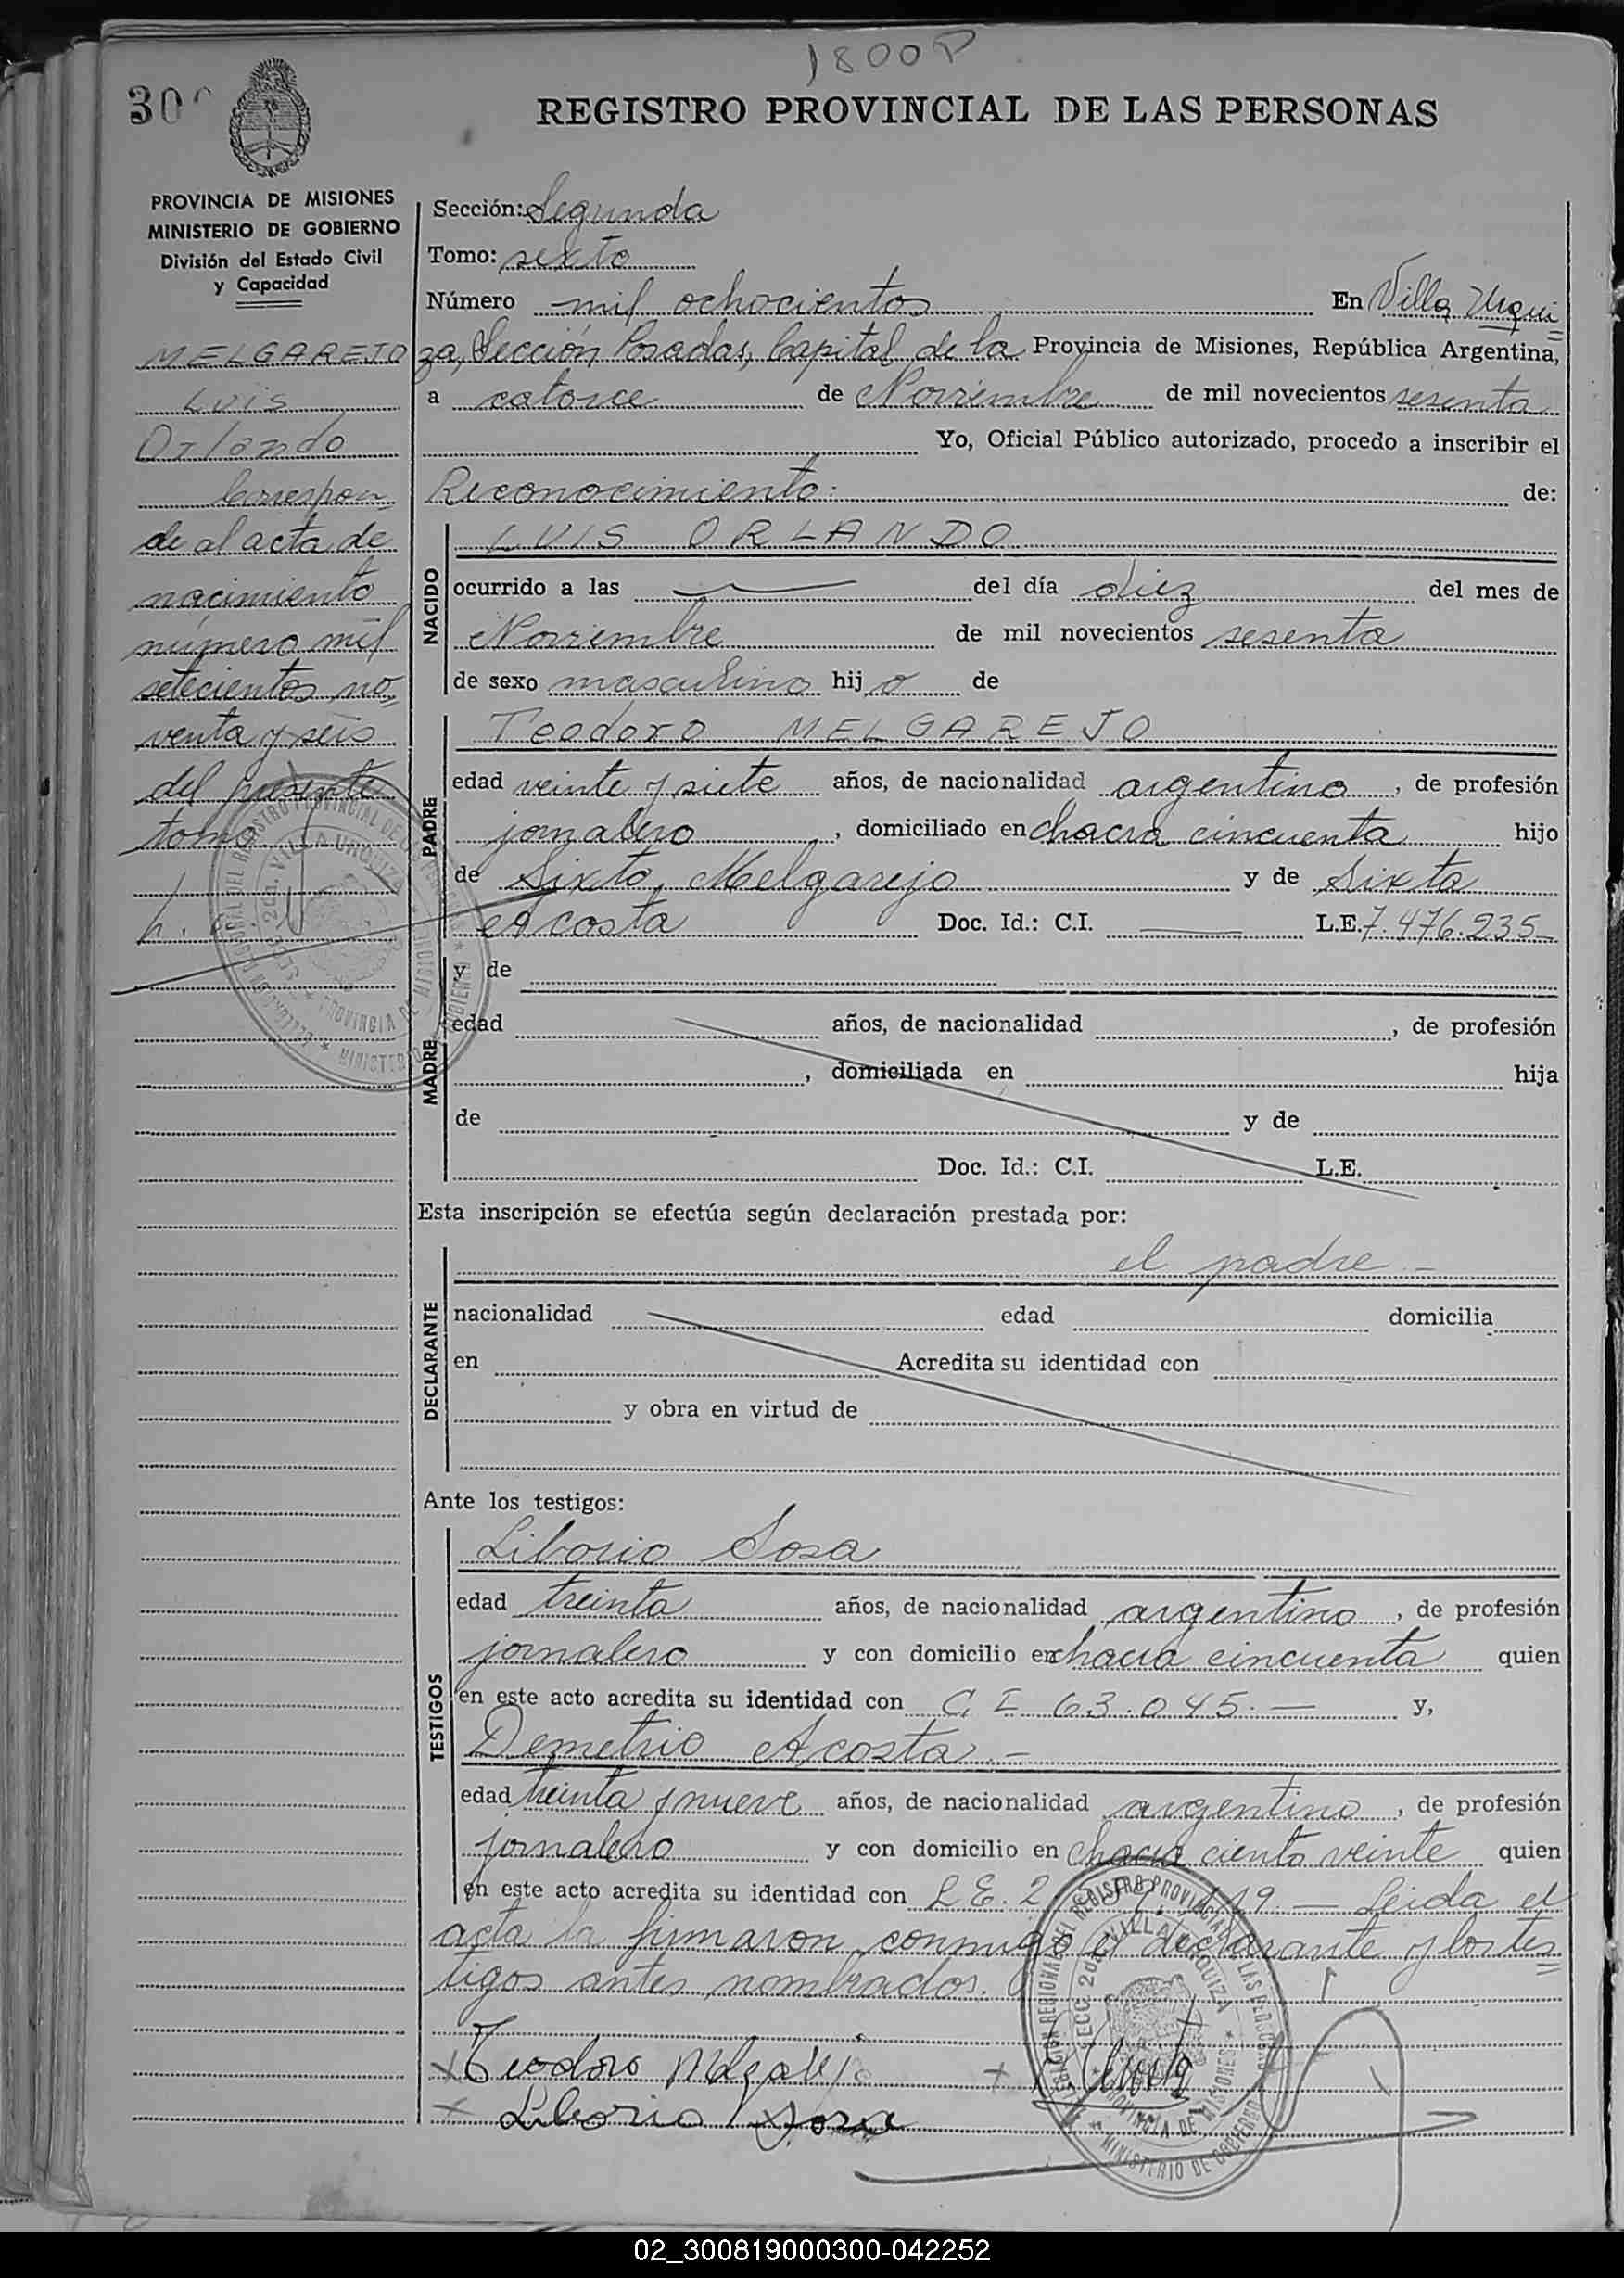 1800P
30
REGISTRO PROVINCIAL DE LAS PERSONAS
PROVINCIA DE MISIONES
MINISTERIO DE GOBIERNO
División del Estado Civil
y Capacidad
MELGAREJO
Luis
Orlando
Correspon
de al acta de
nacimiento
número mil
setecientos no=
venta y seis
del presente
tomo
Sección: Segunda
Tomo: sexto
Número mil ochocientos En Villa Urqui=
za, Sección Posadas, Capital de la Provincia de Misiones, República Argentina,
a catorce de Noviembre de mil novecientos sesenta
Yo, Oficial Público autorizado, procedo a inscribir el
Reconocimiento: de:
NACIDO
LUIS ORLANDO
ocurrido a las — del día diez del mes de
Noviembre de mil novecientos sesenta
de sexo masculino hijo de
PADRE
Teodoro MELGAREJO
edad veinte y siete años, de nacionalidad argentino, de profesión
jornalero, domiciliado en chacra cincuenta hijo
de Sixto Melgarejo y de Sixta
Acosta Doc. Id.: C.I. — L.E. 7.476.235
MADRE
y de
edad años, de nacionalidad , de profesión
, domiciliada en hija
de y de
Doc. Id.: C.I. L.E.
Esta inscripción se efectúa según declaración prestada por:
DECLARANTE
el padre.–
nacionalidad edad domicilia
en Acredita su identidad con
y obra en virtud de
Ante los testigos:
TESTIGOS
Liborio Sosa
edad treinta años, de nacionalidad argentino, de profesión
jornalero y con domicilio en chacra cincuenta quien
en este acto acredita su identidad con C. I 63.045.— y,
Demetrio Acosta.–
edad treinta y nueve años, de nacionalidad argentino, de profesión
jornalero y con domicilio en chacra ciento veinte quien
en este acto acredita su identidad con L E. 2 — Leida el
acta la firmaron conmigo el declarante y los tes=
tigos antes nombrados.
x Teodoro Melgarejo
x Liborio Sosa
02_300819000300-042252